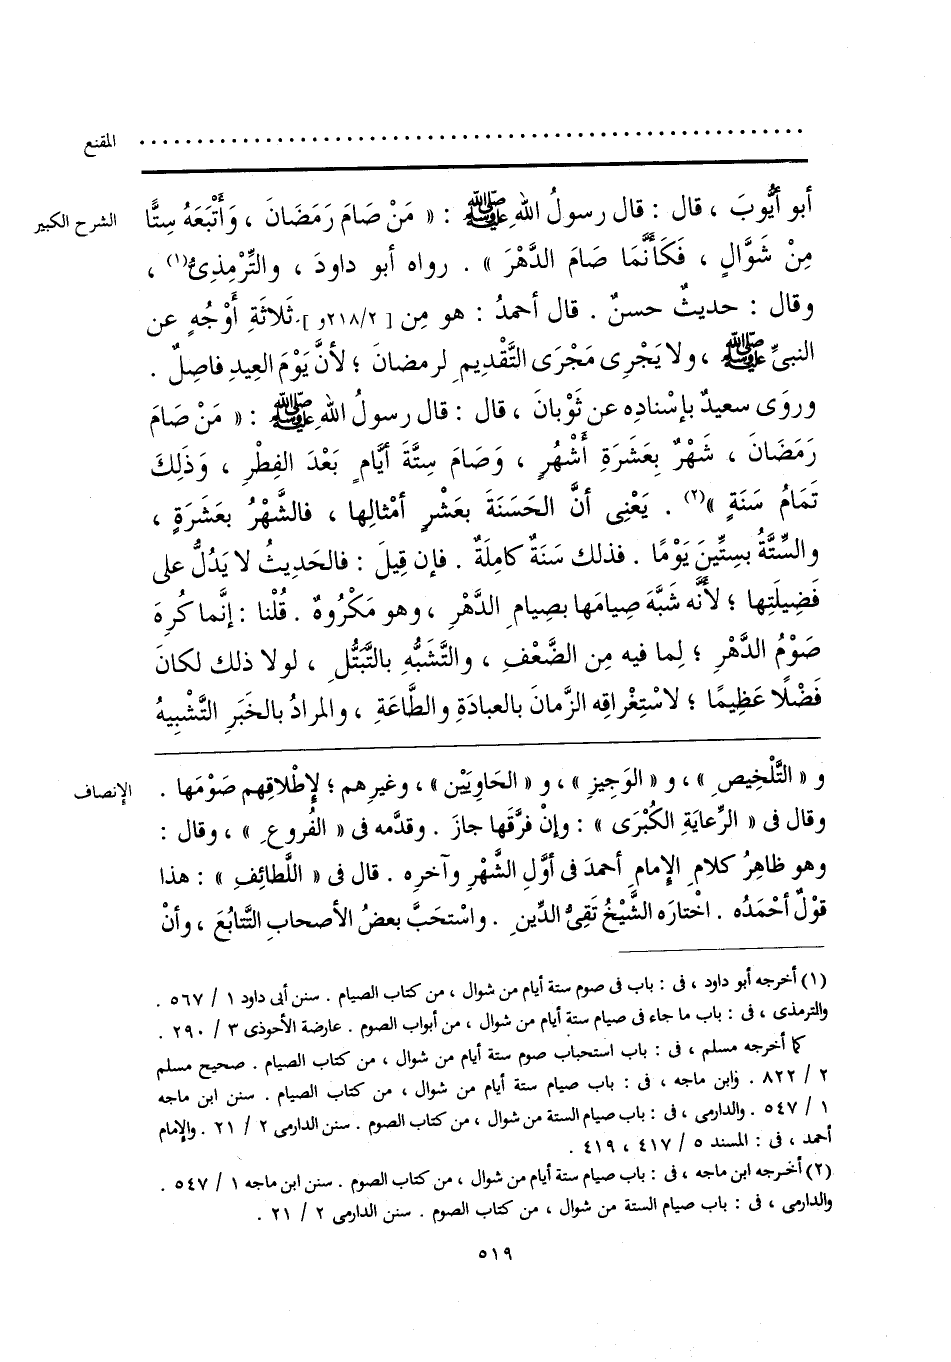 المقنع ................................................
الشرح الكبير أبو أَيُّوبَ ، قال : قال رسولُ اللهِ ﷺ : « مَنْ صَامَ رَمَضَانَ ، وَأَتْبَعَهُ سِتًّا
مِنْ شَوَّالٍ ، فَكَأَنَّمَا صَامَ الدَّهْرَ » . رواه أبو داودَ ، والتِّرْمِذِىُّ(١) ،
وقال : حديثٌ حسنٌ . قال أحمدُ : هو مِن [ ٢١٨/٢و ] ثَلاثَةِ أَوْجُهٍ عن
النبىِّ ﷺ ، ولا يَجْرِى مَجْرَى التَّقْدِيمِ لرمضانَ ؛ لأنَّ يَوْمَ العِيدِ فاصِلٌ .
وروَى سعيدٌ بإسْنادِه عن ثَوْبانَ ، قال : قال رسولُ اللهِ ﷺ : « مَنْ صَامَ
رَمَضَانَ ، شَهْرٌ بِعَشَرَةِ أَشْهُرٍ ، وَصَامَ سِتَّةَ أَيَّامٍ بَعْدَ الفِطْرِ ، وَذَلِكَ
تَمَامُ سَنَةٍ »(٢) . يَعْنِى أنَّ الحَسَنَةَ بعَشْرِ أمْثالِها ، فالشَّهْرُ بعَشَرَةٍ ،
والسِّتَّةُ بسِتِّينَ يَوْمًا . فذلك سَنَةٌ كامِلَةٌ . فإن قِيلَ : فالحَدِيثُ لا يَدُلُّ على
فَضِيلَتِها ؛ لأَنَّه شَبَّهَ صِيامَها بصِيامِ الدَّهْرِ ، وهو مَكْرُوهٌ . قُلْنا : إنَّما كُرِهَ
صَوْمُ الدَّهْرِ ؛ لِما فيه مِن الضَّعْفِ ، والتَّشَبُّهِ بالتَّبَتُّلِ ، لولا ذلك لكانَ
فَضْلًا عَظِيمًا ؛ لاسْتِغْراقِه الزَّمانَ بالعبادَةِ والطَّاعَةِ ، والمرادُ بالخَبَرِ التَّشْبِيهُ
الإنصاف و « التَّلْخِيصِ » ، و « الوَجِيزِ » ، و « الحَاوِيَيْن » ، وغيرِهم ؛ لإِطْلاقِهم صَوْمَها .
وقال فى « الرِّعايَةِ الكُبْرَى » : وإنْ فرَّقَها جازَ . وقدَّمه فى « الفُروعِ » ، وقال :
وهو ظاهِرُ كلامِ الإِمامِ أحمدَ فى أوَّلِ الشَّهْرِ وآخرِه . قال فى « اللَّطائِفِ » : هذا
قوْلُ أحْمَدَه . اخْتارَه الشَّيْخُ تَقِىُّ الدِّينِ . واسْتحَبَّ بعضُ الأصحابِ التَّتابُعَ ، وأنْ
(١) أخرجه أبو داود ، فى : باب فى صوم ستة أيام من شوال ، من كتاب الصيام . سنن أبى داود ١ / ٥٦٧ .
والترمذى ، فى : باب ما جاء فى صيام ستة أيام من شوال ، من أبواب الصوم . عارضة الأحوذى ٣ / ٢٩٠ .
كما أخرجه مسلم ، فى : باب استحباب صوم ستة أيام من شوال ، من كتاب الصيام . صحيح مسلم
٢ / ٨٢٢ . وابن ماجه ، فى : باب صيام ستة أيام من شوال ، من كتاب الصيام . سنن ابن ماجه
١ / ٥٤٧ . والدارمى ، فى : باب صيام الستة من شوال ، من كتاب الصوم . سنن الدارمى ٢ / ٢١ . والإمام
أحمد ، فى : المسند ٥ / ٤١٧ ، ٤١٩ .
(٢) أخرجه ابن ماجه ، فى : باب صيام ستة أيام من شوال ، من كتاب الصوم . سنن ابن ماجه ١ / ٥٤٧ .
والدارمى ، فى : باب صيام الستة من شوال ، من كتاب الصوم . سنن الدارمى ٢ / ٢١ .
٥١٩